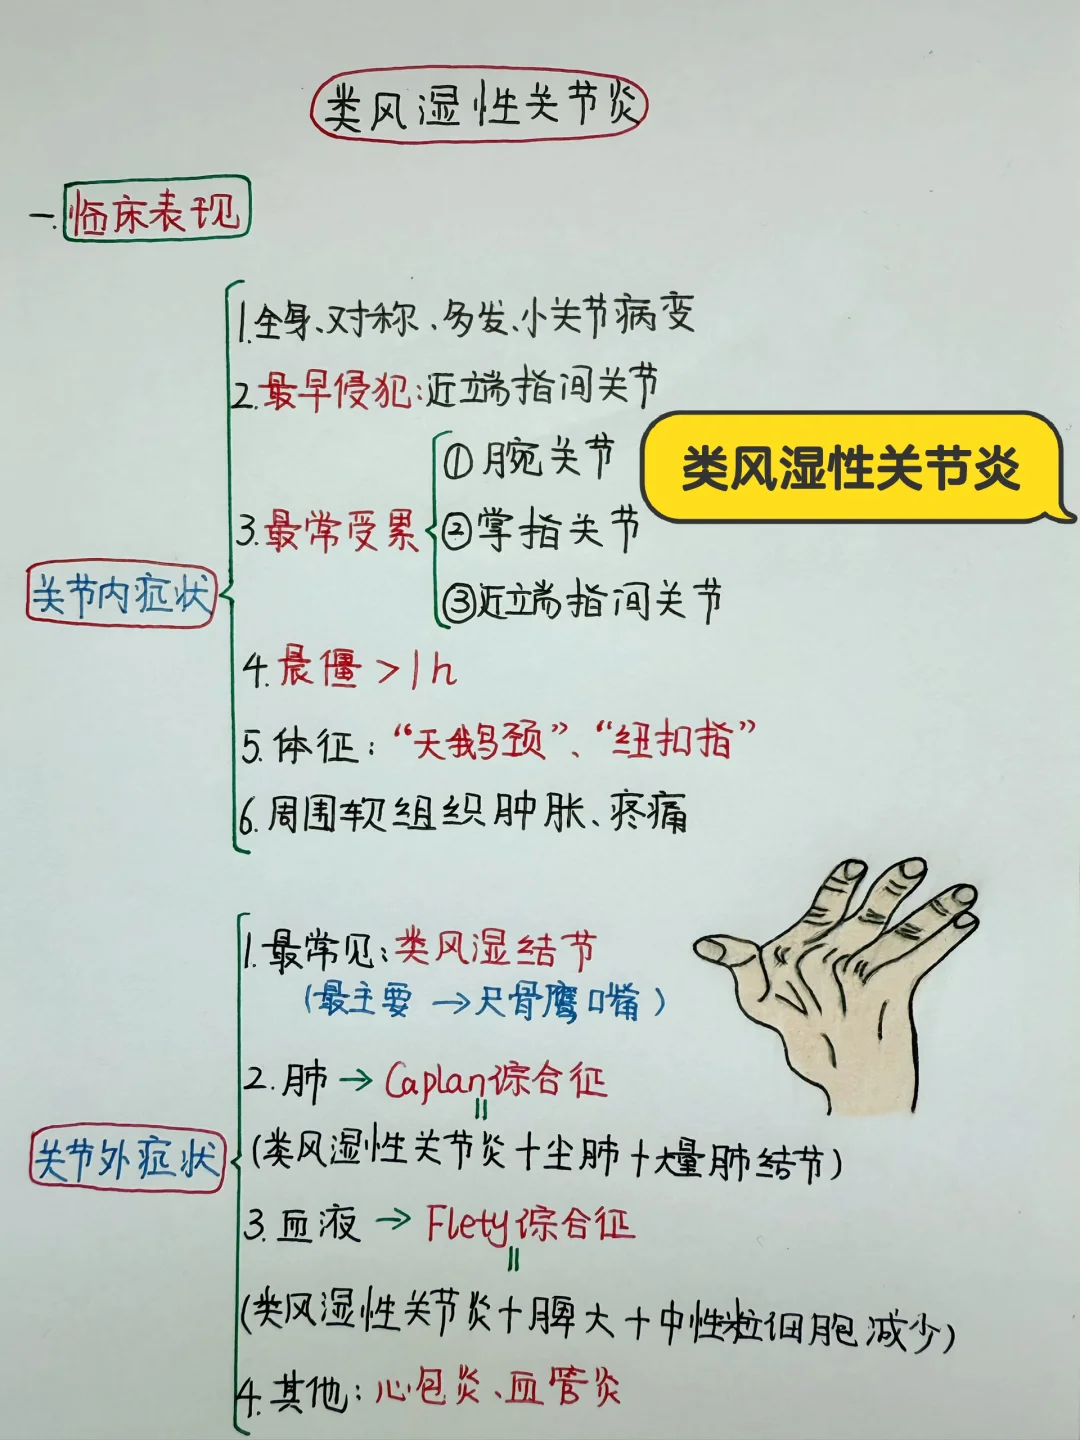 类风湿性关节炎
一.临床表现
1.全身、对称、多发、小关节病变
2.最早侵犯:近端指间关节
类风湿性关节炎
3.最常受累
①腕关节
②掌指关节
③近端指间关节
关节内症状
4.晨僵>1h
5.体征:“天鹅颈”、“纽扣指”
6.周围软组织肿胀、疼痛
1.最常见:类风湿结节
(最主要→尺骨鹰口嘴)
2.肺→Caplan综合征
=
(类风湿性关节炎+尘肺+大量肺结节)
关节外症状
3.血液→Flety综合征
=
(类风湿性关节炎+脾大+中性粒细胞减少)
4.其他:心包炎、血管炎